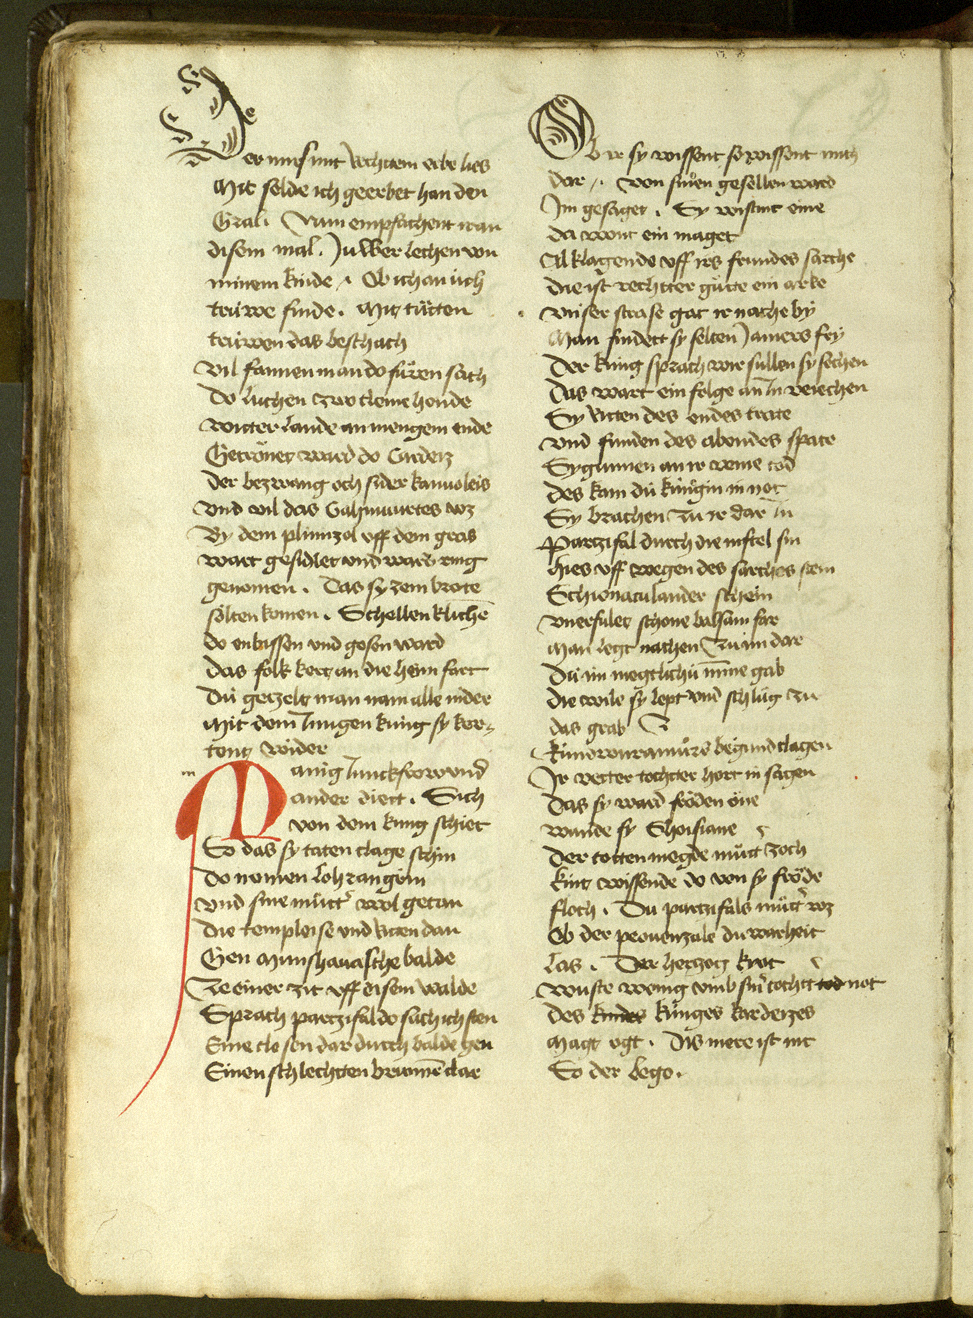 Der uns sint rechtem erbe lies
Mit selde ich geerbet han den
Gral. Nun empfachent man
disem mal. Juwer lechen von
minem kinde / Ob ich an uch
truwe finde. Mit gutten
truwen das beschach
vil fannen man do fůren sach
Do luchen zwo cleine hende
witter lande an mengem ende
Getrönet ward do Cardeiz
der bezwang och sider kanvoleis
vnd vil das Gahmuretes wz
By dem plimizol uff dem gras
wart gesidlet und ward ring
genomen. Das sy zem brote
sölten komen. Schellenkliche
do enbissen und gosen ward
das folk kert an die heim fart
Dü getzelt man nam alle nider
Mit dem Jungen kung sy ker=
tent wider
Manig Junckfrow und
ander diett. Sich
von dem kung schiet
So das sy taten clage schin
do nomen lohrangrin
und sine můtt wol getan
Die templeise und ritten dan
Gen Munshavasche balde
Ze einer zit uff disem walde
Sprach partzifal do sach ich sten
Eine closen dar durch balde gen
Einen schlechten brunnen clar
Ob ir sy wissent so wissent mich
dar /. Von sinen gesellen ward
Im gesaget. Sy wistent eine
da wont ein maget
Al klagende uff irs frundes sarche
Die ist rechtter gütte ein arke
vnser strase gat ir nache by
Man findett sy selten Jamers fry
Der kung sprach wir sullen sy sechen
Das wart ein folge an In veiechen
Sy ritten des endes trate
und funden des abendes spate
Sygunnen an ir venie tod
Des kam dü küngin in not
Sy brachen zu ir dar in
Partzifal durch die niftel sin
hies uff wegen des sarches stein
Schionatulander schein
vnerfulet schone balsam far
Man legt nachen Zu im dar
Dü im megtlichü mine gab
die wile sy lept und schlüg zu
das grab
Kundwiramürs begund clagen
Jr vetter tochtter hort in sagen
Das sy ward fröden öne
wande sy Shoisiane
Der totten megde můtt zoch
kint wissende do von sy fröde
floch. Dü partzifals mütt wz
Ob der provenzale du warheit
las. Der hertzog kyot
wuste wenig umb sin tochtt tod not
des kindes künges kardeizes
Magt ogt. Dis mere ist nit
So der bogo.